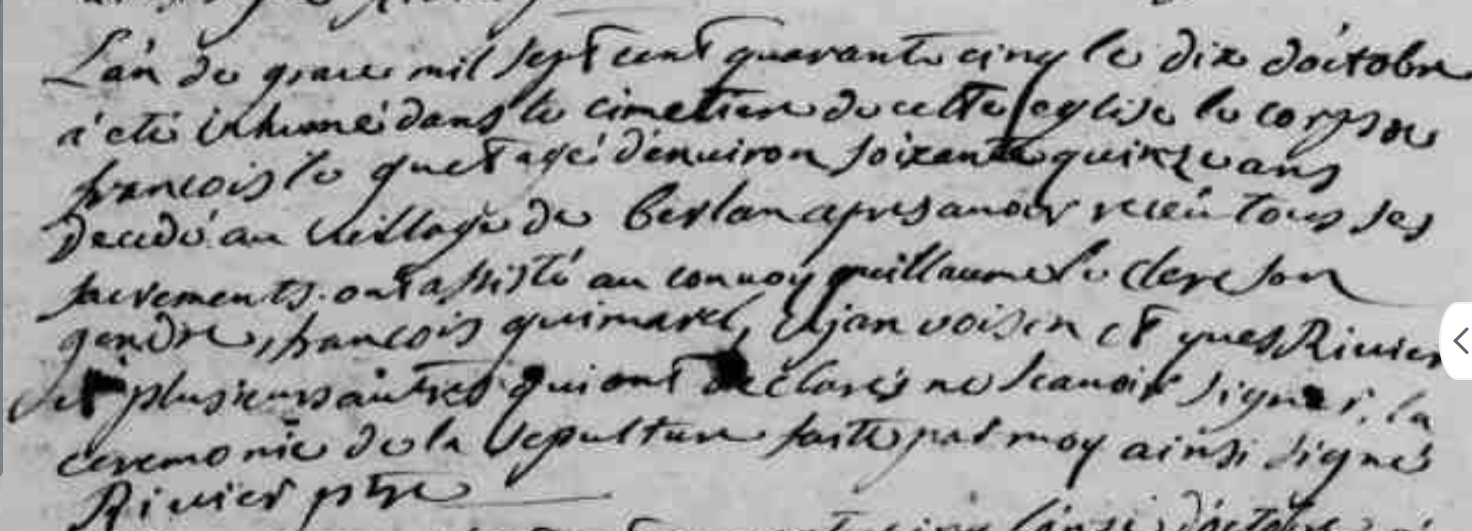 L'an de grace mil sept cent quarante cinq le dix d'octobre
a été inhumé dans le cimetiere de cette eglise le corps de
francois le quet agé d'environ soixante quinze ans
decedé au village de berlan apres avoir receu tous ses
sacrements. ont assisté au convoy guillaume le clerc son
gendre, francois quimarel, jan voisin et yves Rivier
et plusieurs autres qui ont declarés ne scavoir signer. la
ceremonie de la sepulture faite par moy ainsi signé
Rivier ptre